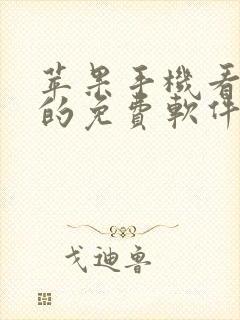 苹果手機看
的免費軟件
戈迪魯